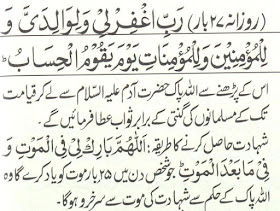 (روزانہ ۲۷ بار) رَبِّ اغْفِرْ لِیْ وَلِوَالِدَیَّ وَ
لِلْمُؤْمِنِیْنَ وَلِلْمُؤْمِنَاتِ یَوْمَ یَقُوْمُ الْحِسَابُ ط
اس کے پڑھنے سے اللہ پاک حضرت آدم علیہ السلام سے لے کر قیامت
تک کے مسلمانوں کی گنتی کے برابر ثواب عطا فرمائیں گے۔
شہادت حاصل کرنے کا طریقہ: اَللّٰهُمَّ بَارِكْ لِیْ فِی الْمَوْتِ وَ
فِیْ مَا بَعْدَ الْمَوْتِ جو شخص دن میں ۲۵ بار موت کو یاد کرے گا وہ
اللہ پاک کے حکم سے شہادت کی موت سے سرخرو ہوگا۔